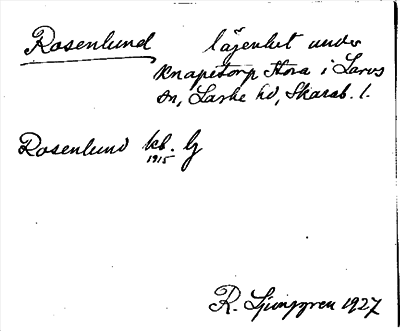 Rosenlund lägenhet under
Knapetorp Stora i Larvs
sn, Laske hd, Skarab. l.
Rosenlund kb. lg
1915
R. Ljunggren 1927